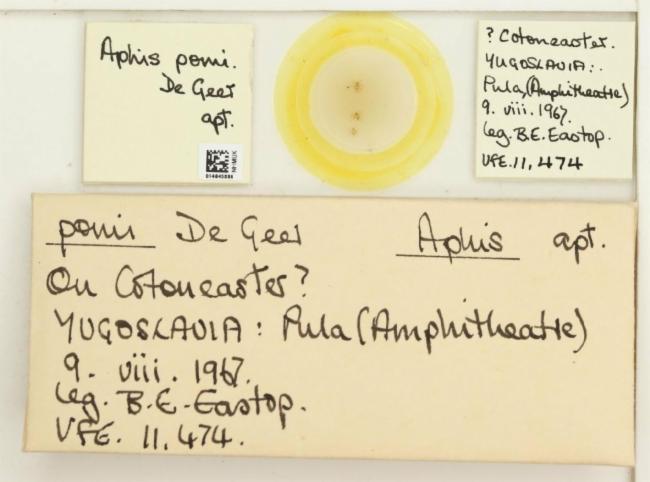 Aphis pomi.
De Geer
apt.
NHMUK
? Cotoneaster.
YUGOSLAVIA:.
Pula, (Amphitheatre)
9. viii. 1967.
leg. B.E. Eastop.
VFE. 11, 474
pomi De Geer Aphis apt.
On Cotoneaster?
YUGOSLAVIA: Pula (Amphitheatre)
9. viii. 1967.
leg. B.E. Eastop.
VFE. 11, 474.